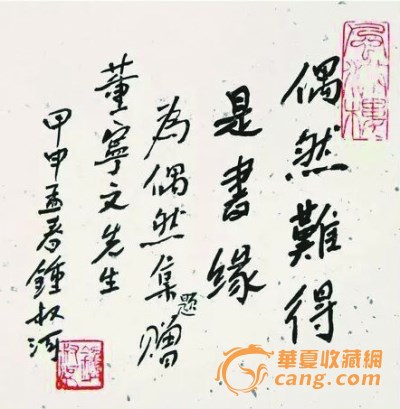 偶然難得
是書緣
為偶然集題贈
董寧文先生
甲申孟春鍾叔河
華夏收藏網
cang.com